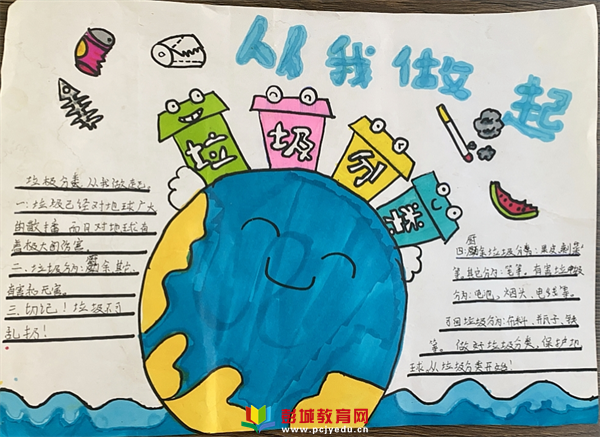 从我做起
垃
圾
分
类
垃圾分类 从我做起。
一.垃圾已经对地球广大
的散播 而且对地球有
着极大的伤害。
二.垃圾分为:厨余其它
有害和
三.切记!垃圾不可
乱扔!
四.厨余垃圾分类:果皮剩菜
等,其它分为:笔等。有害垃圾
分为:电池、烟头、电线等。
可回垃圾分为:布料、瓶子、铁
等。做好垃圾分类,保护地
球,从垃圾分类开始!
彭城教育网
www.pcjyedu.cn